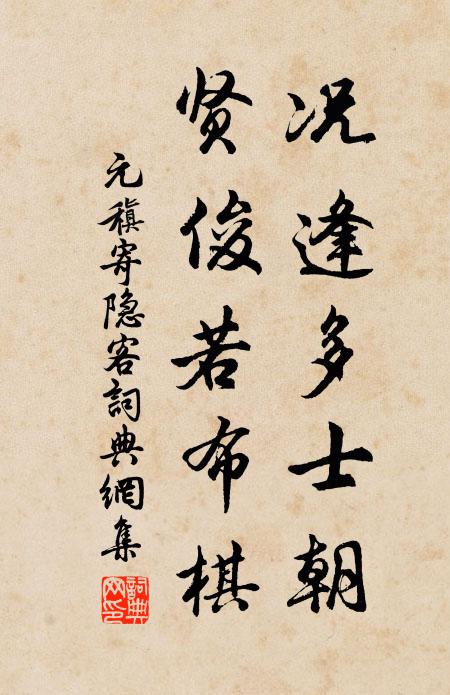 况逢多士朝
贤俊若布棋
元稹寄隐客詞典網集
詞典